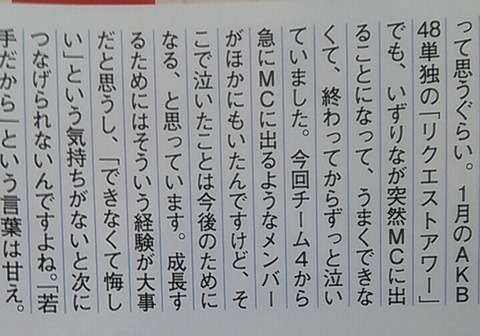 って思うぐらい。1月のAKB
48単独の「リクエストアワー」
でも、いずりなが突然MCに出
ることになって、うまくできな
くて、終わってからずっと泣い
ていました。今回チーム4から
急にMCに出るようなメンバー
がほかにもいたんですけど、そ
こで泣いたことは今後のために
なる、と思っています。成長す
るためにはそういう経験が大事
だと思うし、「できなくて悔し
い」という気持ちがないと次に
つなげられないんですよね。「若
手だから」という言葉は甘え。